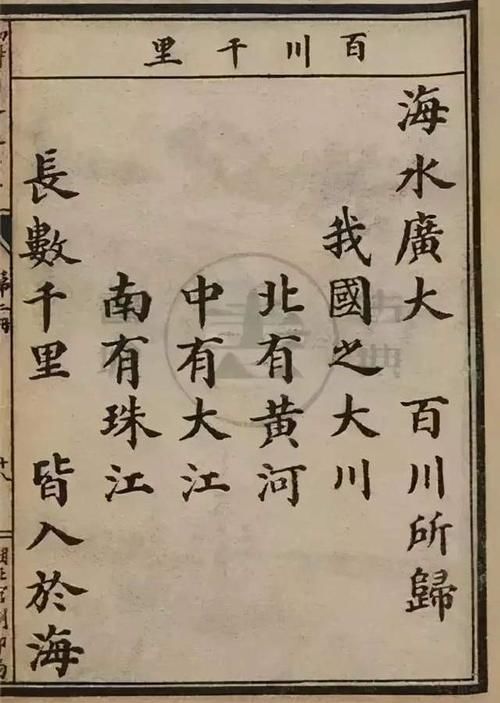 百川千里
海水廣大 百川所歸
我國之大川
北有黃河
中有大江
南有珠江
長數千里 皆入於海
第二冊